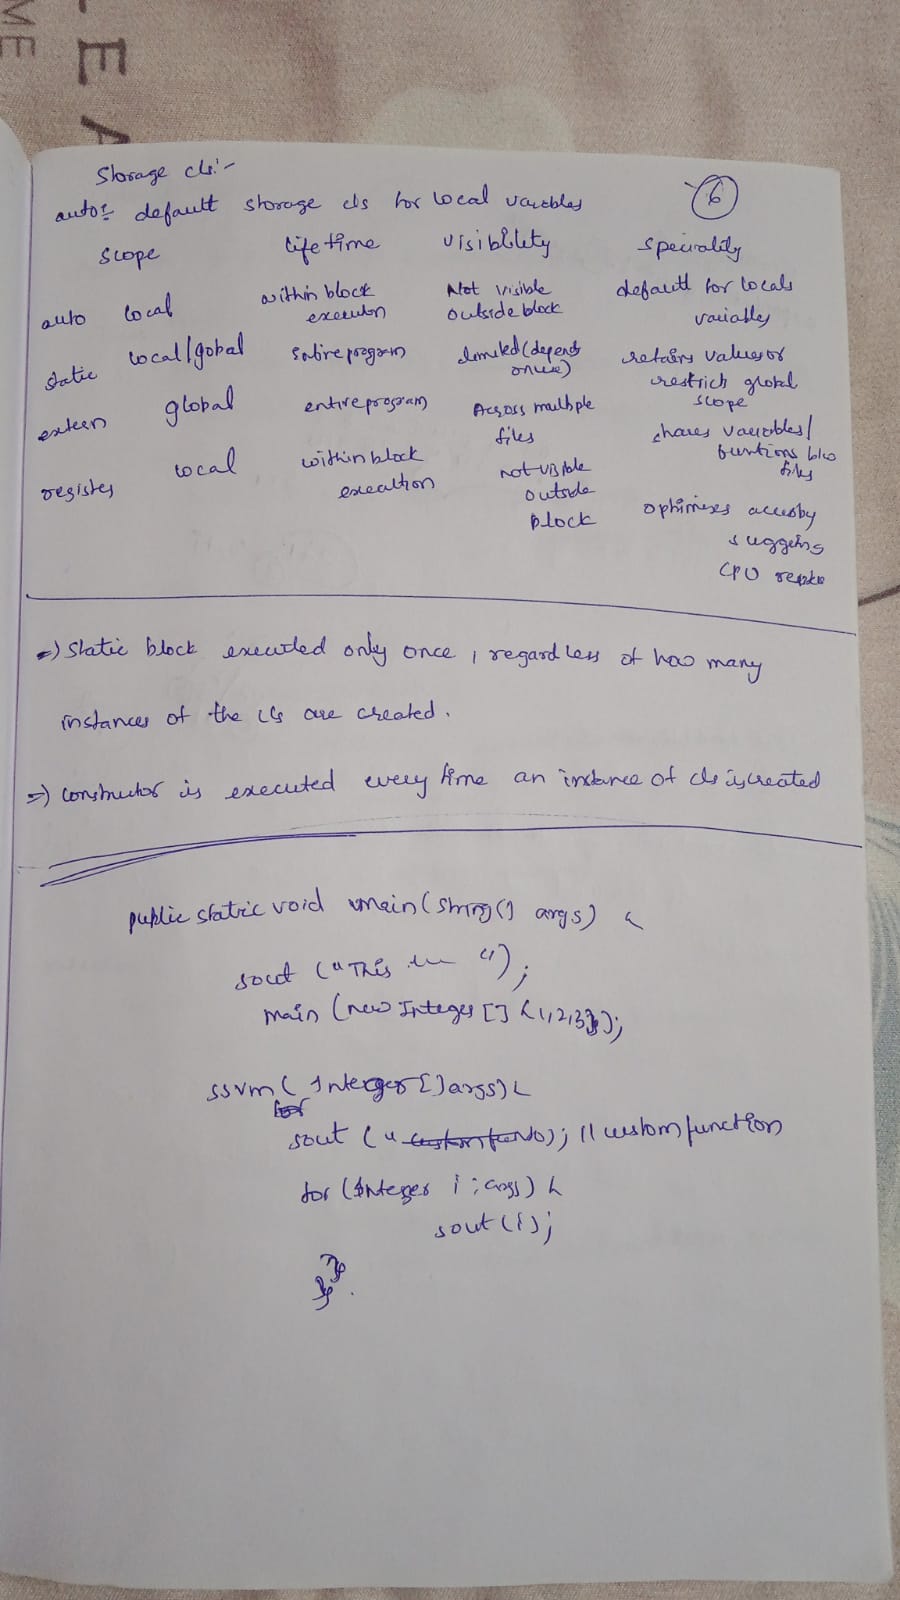 LEA
ME
Storage cls:-
6
auto:- default storage cls for local variables
scope lifetime visibility speciality
auto local within block execution Not visible outside block default for locals variables
static local/gobal entire program limited (depends on use) retains values or restrich global scope
extern global entire program Across multiple files shares variables/ functions b/w files
register local within block execution not visible outside block optimises access by suggeting CPU
=) Static block executed only once, regardless of how many
instances of the cls are created.
=) constructor is executed every time an instance of cls is created
public static void main(String[] args) {
sout ("This ");
main (new Integer[] {1,2,3});
ssvm( Integer[] args) {
for
sout (" custom ); // custom function
for (Integer i : args) {
sout(i);
}}
}